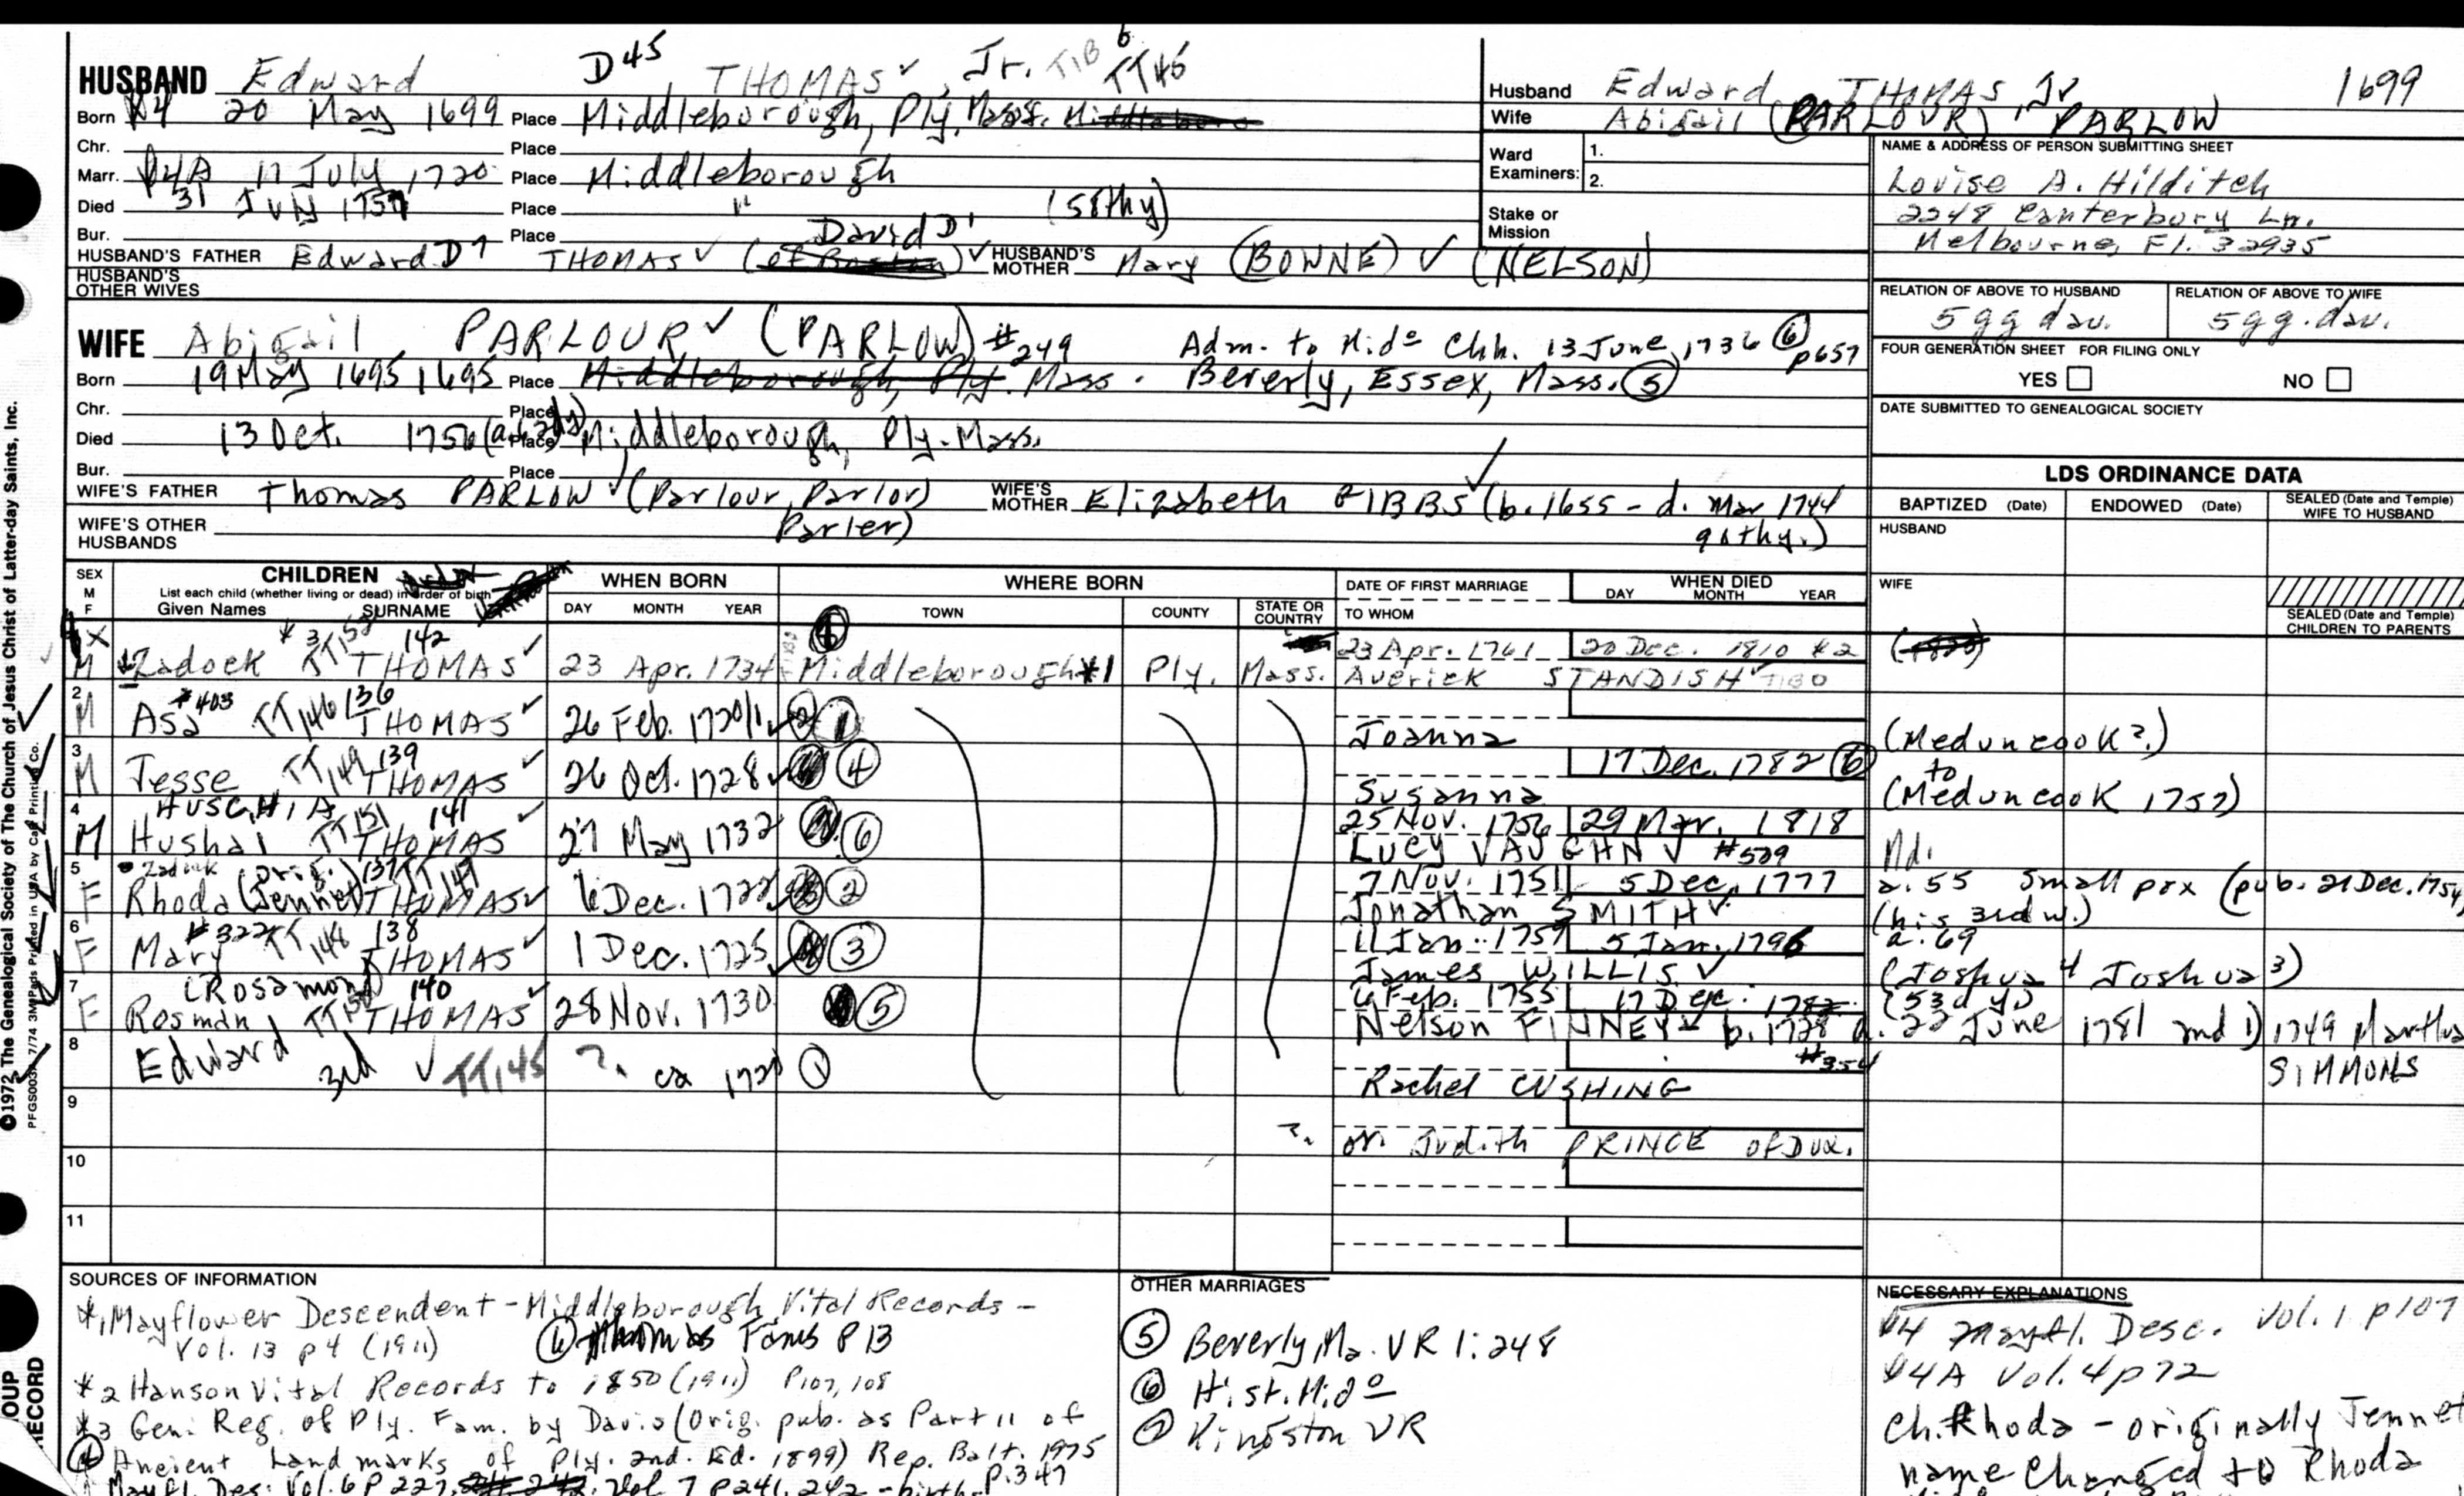 HUSBAND Edward D45 THOMAS ✓, Jr. T1B 6 TT46
Born 20 May 1699 Place Middleborough, Ply, Mass.
Chr. Place
Marr. #4A 11 July, 1720 Place Middleborough
Died 31 July 1757 Place " (58thy)
Bur. Place David D1
HUSBAND'S FATHER Edward D7 THOMAS ✓ (of Boston) ✓ HUSBAND'S MOTHER Mary (BOWNE) ✓ (NELSON)
HUSBAND'S OTHER WIVES
Husband Edward THOMAS Jr 1699
Wife Abigail (PARLOUR) PARLOW
Ward Examiners: 1.
2.
Stake or Mission
NAME & ADDRESS OF PERSON SUBMITTING SHEET
Louise A. Hilditch
2248 Canterbury Ln.
Melbourne, Fl. 32935
RELATION OF ABOVE TO HUSBAND RELATION OF ABOVE TO WIFE
5 gg dau. 5 gg. dau.
FOUR GENERATION SHEET FOR FILING ONLY
YES NO
DATE SUBMITTED TO GENEALOGICAL SOCIETY
WIFE Abigail PARLOUR ✓ (PARLOW) #249 Adm. to Mido Chh. 13 June, 1736 ⑥ p657
Born 19 May 1695 1695 Place Middleborough, Ply. Mass. Beverly, Essex, Mass. ⑤
Chr. Place
Died 13 Oct. 1756 Place Middleborough, Ply. Mass.
Bur. Place
WIFE'S FATHER Thomas PARLOW ✓ (Parlour, Parlor) WIFE'S MOTHER Elizabeth GIBBS ✓ (b. 1655 - d. Mar 1744
Parler) 90thy.)
WIFE'S OTHER HUSBANDS
LDS ORDINANCE DATA
BAPTIZED (Date) ENDOWED (Date) SEALED (Date and Temple) WIFE TO HUSBAND
HUSBAND
WIFE
SEALED (Date and Temple) CHILDREN TO PARENTS
SEX M F CHILDREN WHEN BORN WHERE BORN DATE OF FIRST MARRIAGE WHEN DIED
List each child (whether living or dead) in order of birth
Given Names SURNAME DAY MONTH YEAR TOWN COUNTY STATE OR COUNTRY TO WHOM DAY MONTH YEAR
X *3 TT152 142 23 Apr. 1761 20 Dec. 1810 *2
M Zadock THOMAS ✓ 23 Apr. 1734 Middleborough *1 Ply. Mass. Averick STANDISH ✓
2 #403 TT146 136
M Asa THOMAS ✓ 26 Feb. 1720/1 ① Joanna (Meduncook?)
3 TT149 139 17 Dec. 1782 ⑥ to
M Jesse THOMAS ✓ 26 Oct. 1728 ④ Susanna (Meduncook 1757)
4 HUSCHIA TT151 141 25 Nov. 1756 29 Mar. 1818
M Hushai THOMAS ✓ 27 May 1732 ⑥ Lucy VAUGHN ✓ #509 Md.
5 (orig.) 137 TT147 7 Nov. 1751 5 Dec. 1777 a. 55 small pox (pub. 21 Dec. 1754
F Rhoda (Jennet) THOMAS ✓ Dec. 1722 ② Jonathan SMITH ✓ (his 3rd w.)
6 #322 TT148 138 11 Jan. 1757 5 Jan. 1796 a. 69
F Mary THOMAS ✓ 1 Dec. 1725 ③ James WILLIS ✓ (Joshua 4 Joshua 3)
7 (Rosamond) 140 6 Feb. 1755 17 Dec. 1782 (53d y)
F Rosman TT150 THOMAS ✓ 28 Nov. 1730 ⑤ Nelson FINNEY b. 1728 d. 22 June 1781 and 1) 1749 Martha SIMMONS
8 Edward 3rd ✓ TT145 ? ca 1720 #354
Rachel CUSHING
9
? or Judith PRINCE of Dux.
10
11
SOURCES OF INFORMATION
*1 Mayflower Descendent - Middleborough Vital Records -
Vol. 13 p 4 (1911) Thomas Fams P 13
*2 Hanson Vital Records to 1850 (1911) P107, 108
*3 Gen. Reg. of Ply. Fam. by Davis (Orig. pub. as Part 11 of
Ancient Landmarks of Ply. 2nd. Ed. 1899) Rep. Balt. 1975
Mayfl. Des. Vol. 6 P 227, Vol 7 P 241, 242 - birth P. 347
OTHER MARRIAGES
⑤ Beverly, Ma. VR 1:248
⑥ Hist. Mido
⑦ Kingston VR
NECESSARY EXPLANATIONS
#4 Mayfl. Desc. Vol. 1 p107
#4A Vol. 4 p72
Ch. Rhoda - originally Jennet
name changed to Rhoda
©1972 The Genealogical Society of The Church of Jesus Christ of Latter-day Saints, Inc.
OUP RECORD